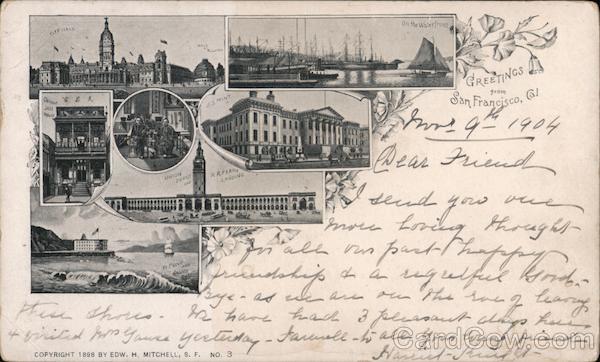 CITY HALL
HALL OF RECORDS
On the Waterfront
GREETINGS
from
San Francisco, Cal
U.S. MINT
UNION DEPOT
AND
R.R. FERRY
LANDING
Nov 9th 1904
Dear Friend
I send you one
more loving thought
for all our past happy
friendship & a regretful Good-
bye - as we are on the eve of leaving
these shores. We have had 3 pleasant days here
& visited Mrs yesterday - Farewell to all
Friend
COPYRIGHT 1898 BY EDW. H. MITCHELL, S. F. NO. 3
CardCow.com